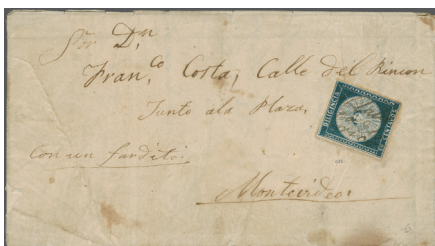 Sor Dn
Franco Costa, Calle del Rincon
Junto ala Plaza,
Con un fardito:
Montevideo:
DILIGENCIA